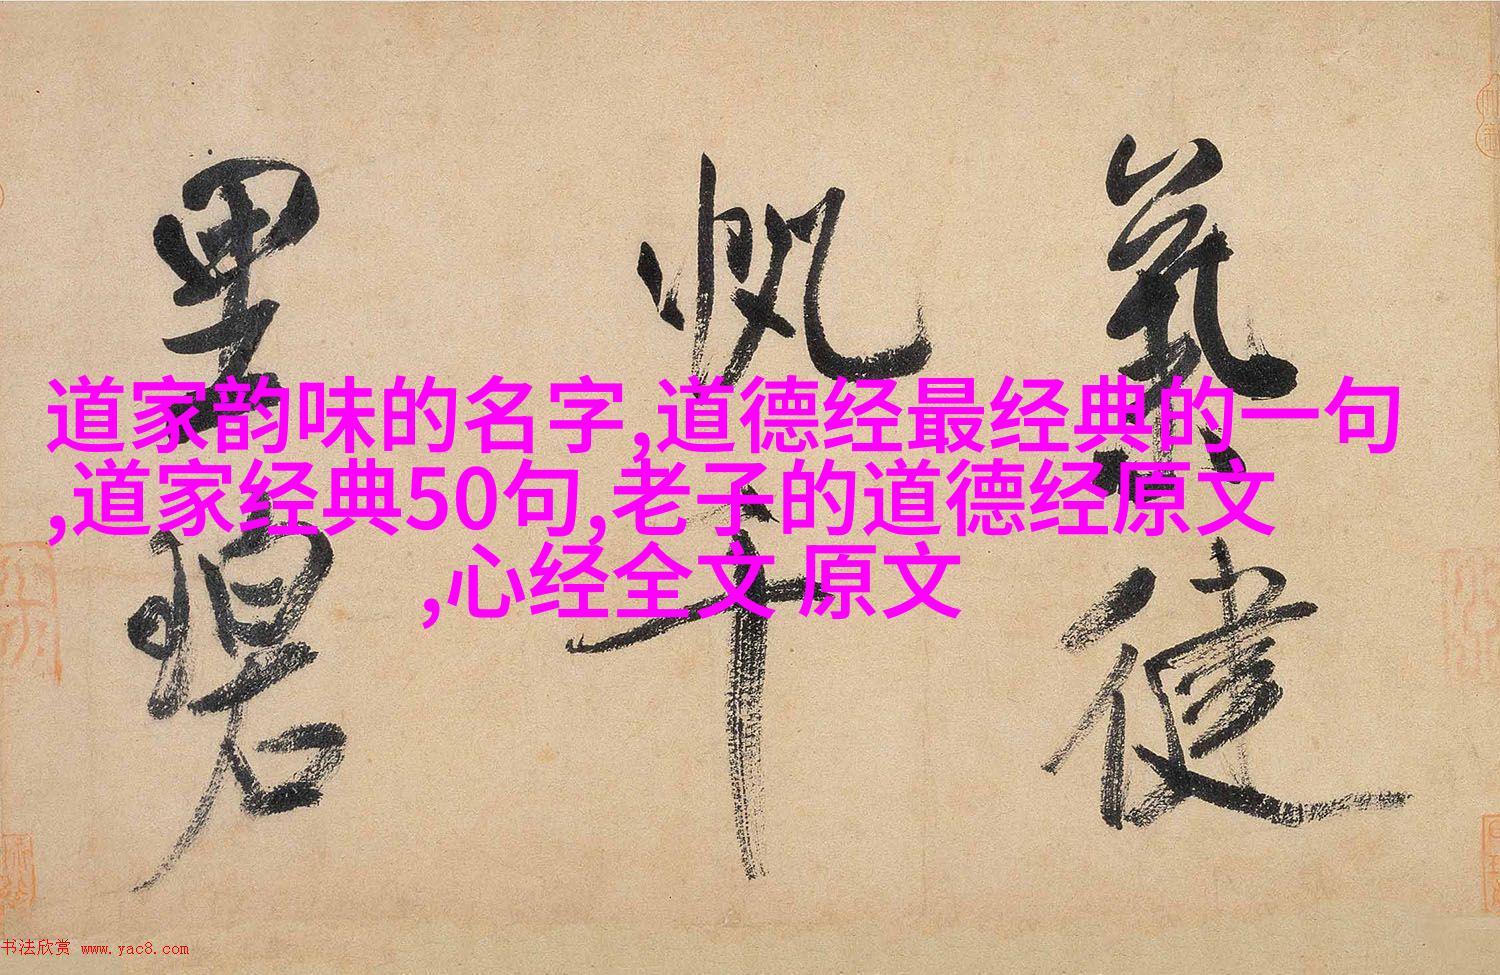 道家韵味的名字,道德经最经典的一句
,道家经典50句,老子的道德经原文
,心经全文 原文
健
千
里
碧
书法欣赏 www.yac8.com